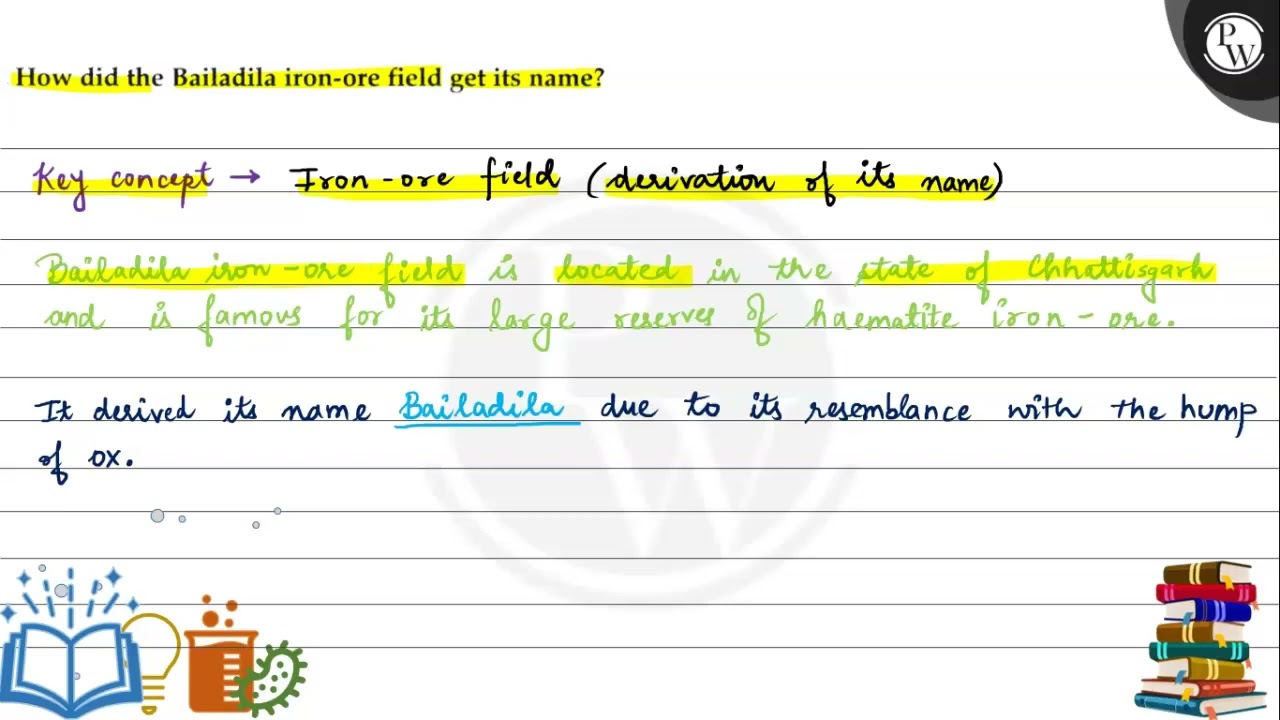 How did the Bailadila iron-ore field get its name?
PW
Key concept → Iron-ore field (derivation of its name)
Bailadila iron-ore field is located in the state of Chhattisgarh
and is famous for its large reserves of haematite iron-ore.
It derived its name Bailadila due to its resemblance with the hump
of ox.